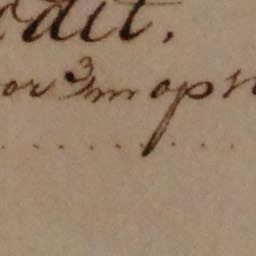 odit,
or 3m opn